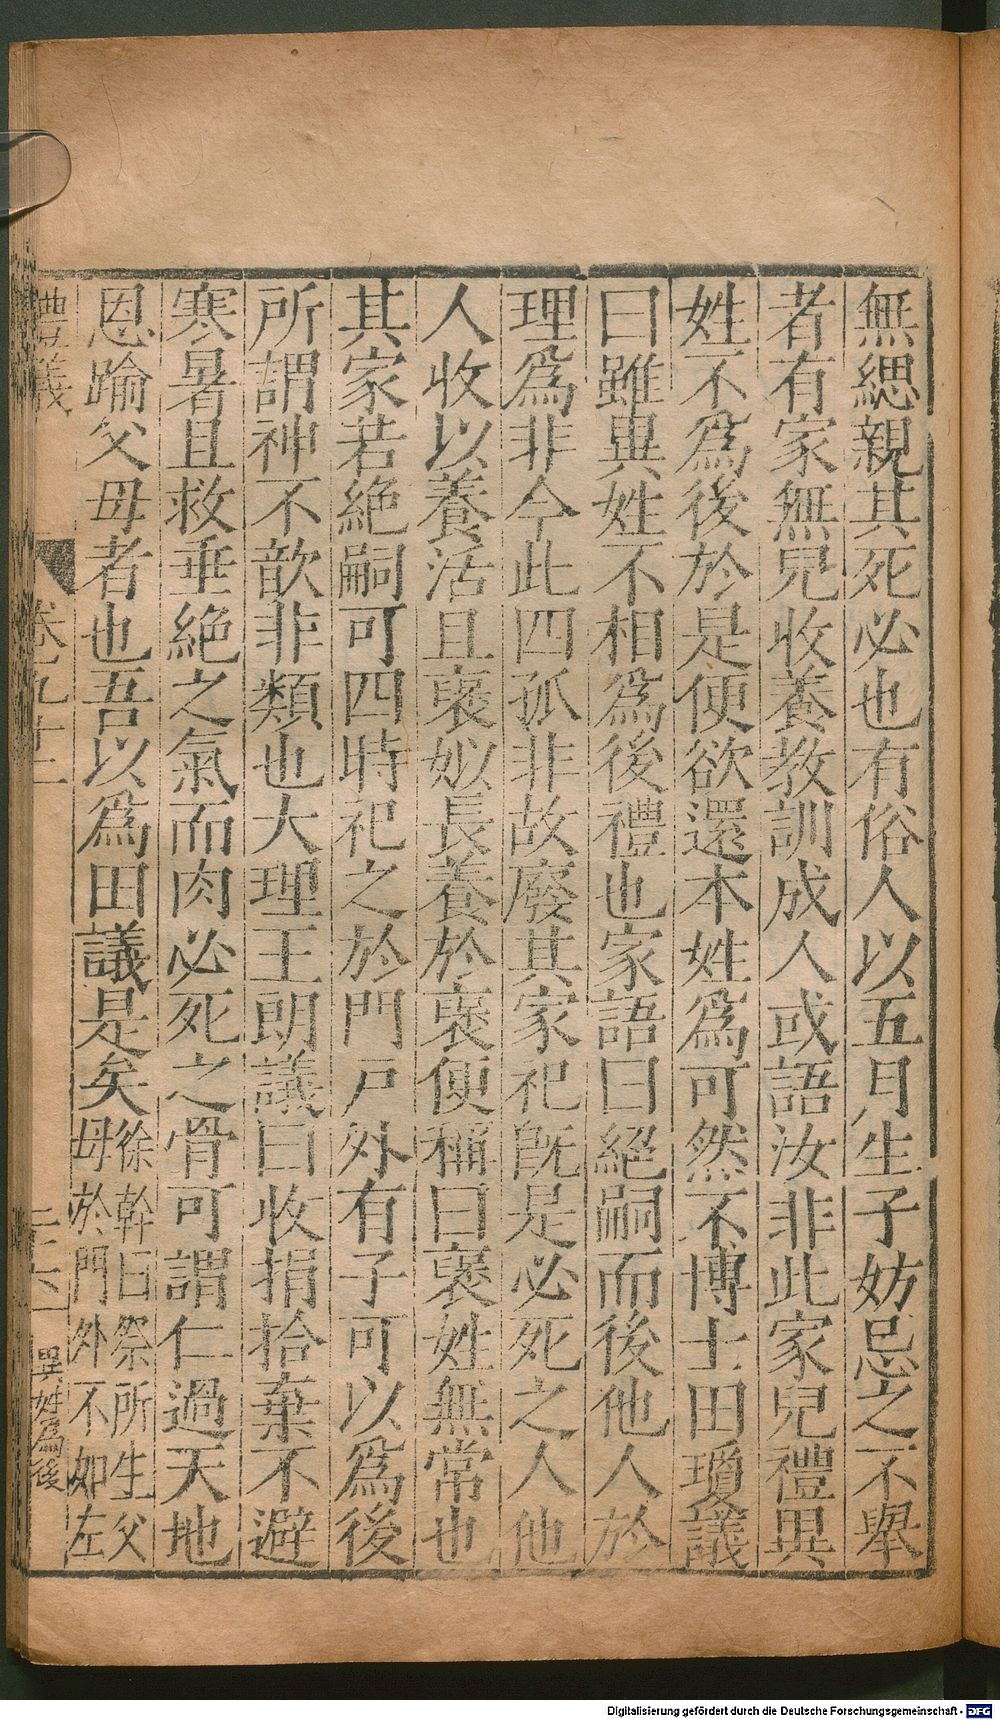 無緦親其死必也有俗人以五月生子妨忌之不舉
者有家無兒收養教訓成人或語汝非此家兒禮異
姓不爲後於是便欲還本姓爲可然不博士田瓊議
曰雖異姓不相爲後禮也家語曰絕嗣而後他人於
理爲非今此四孤非故廢其家祀旣是必死之人他
人收以養活且褒姒長養於褒便稱曰褒姓無常也
其家若絕嗣可四時祀之於門戶外有子可以爲後
所謂神不歆非類也大理王朗議曰收捐拾棄不避
寒暑且救垂絕之氣而肉必死之骨可謂仁過天地
恩踰父母者也吾以爲田議是矣
徐幹曰祭所生父
母於門外不如左
禮議
卷九十二
二十六
異姓爲後
Digitalisierung gefördert durch die Deutsche Forschungsgemeinschaft - DFG